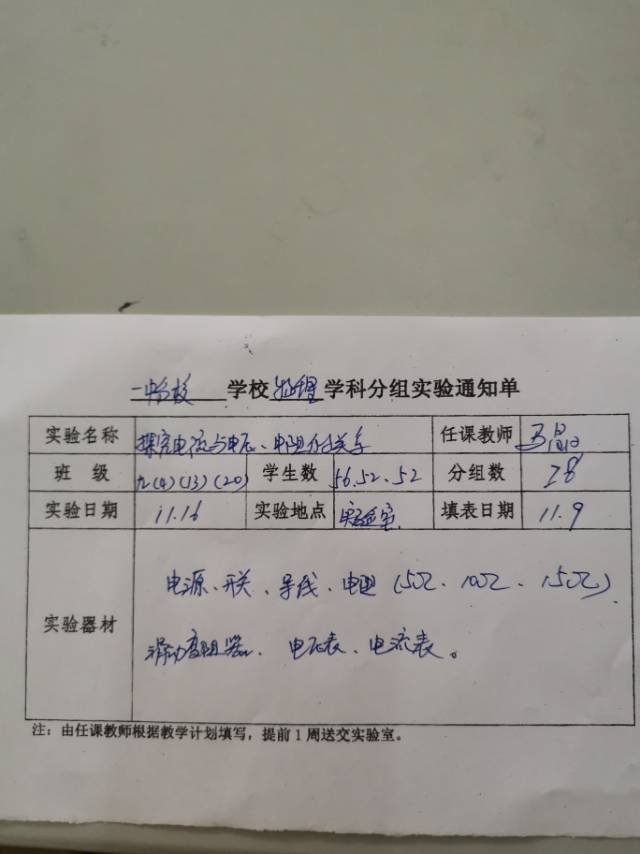 一中分校 学校 物理 学科分组实验通知单
实验名称 探究电流与电压、电阻的关系 任课教师 王
班 级 九(4)(13)(20) 学生数 56.52.52 分组数 28
实验日期 11.16 实验地点 实验室 填表日期 11.9
实验器材
电源、开关、导线、电阻(5Ω、10Ω、15Ω)、
滑动变阻器、电压表、电流表。
注：由任课教师根据教学计划填写，提前1周送交实验室。